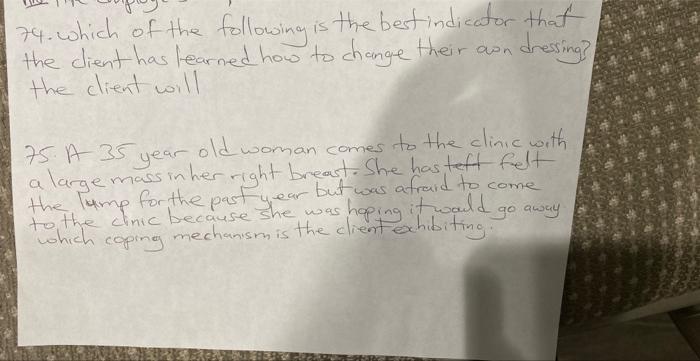 74. Which of the following is the best indicator that
the client has learned how to change their own dressing?
the client will
75. A 35 year old woman comes to the clinic with
a large mass in her right breast. She has left felt
the lump for the past year but was afraid to come
to the clinic because she was hoping it would go away
which coping mechanism is the client exhibiting.